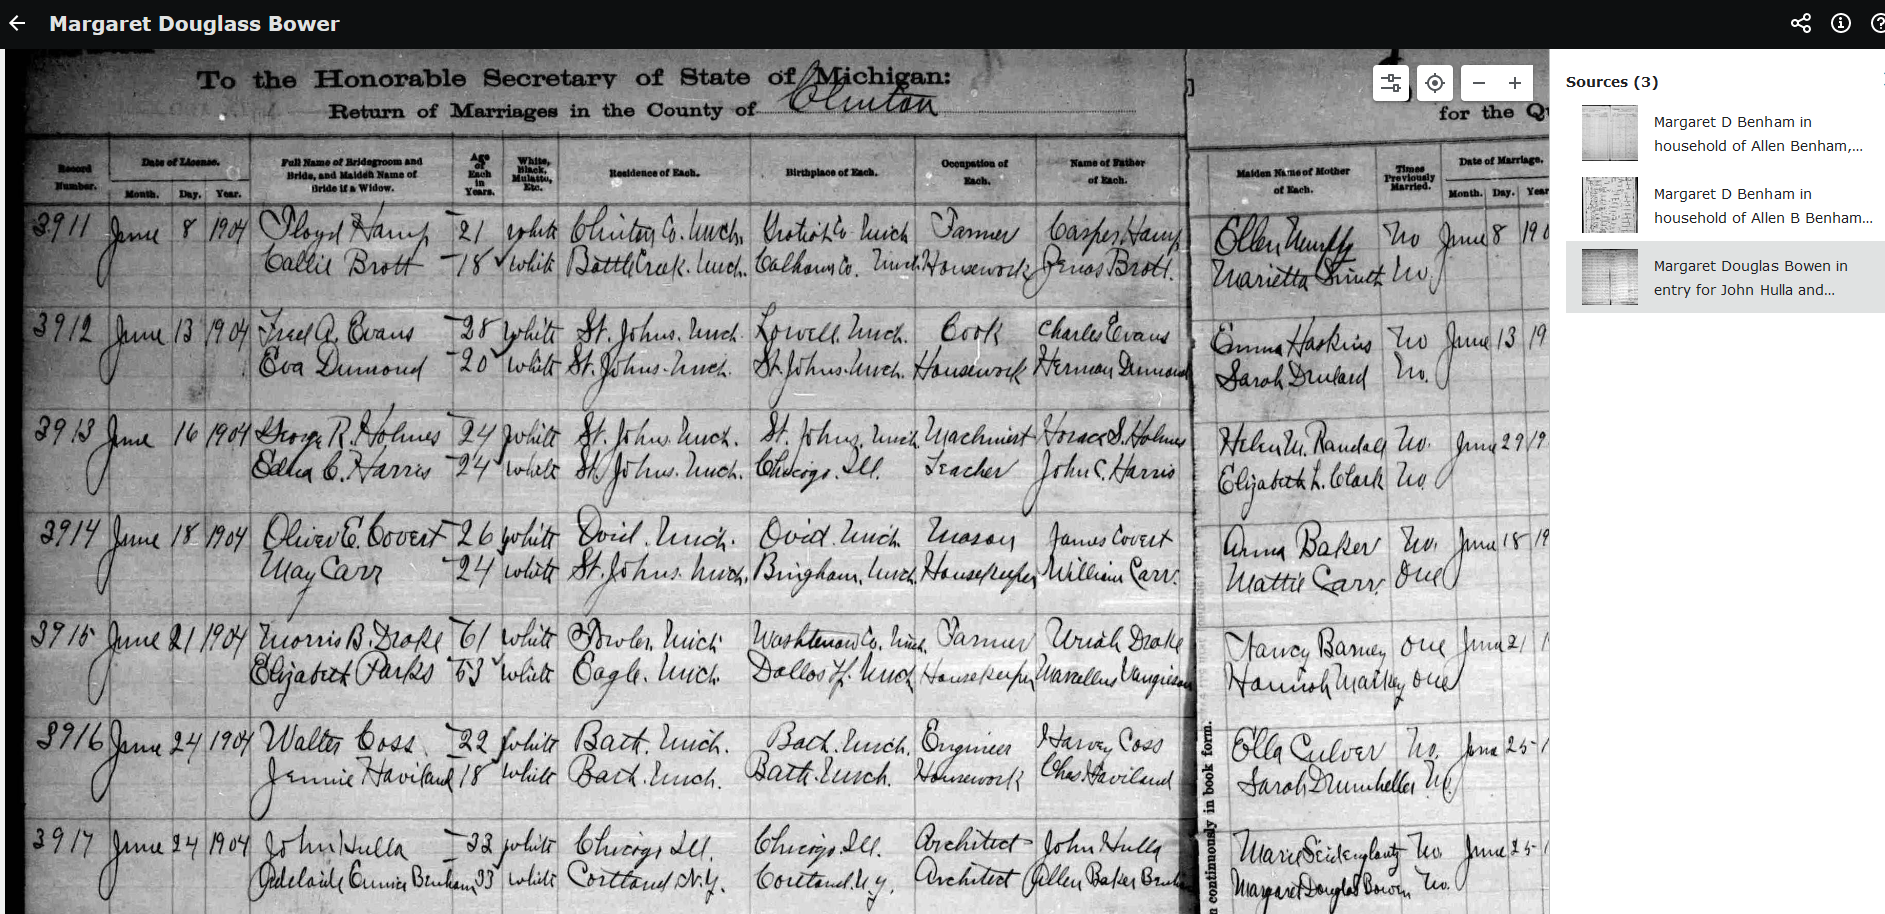 Margaret Douglass Bower
To the Honorable Secretary of State of Michigan:
Return of Marriages in the County of Clinton
for the Qu
Record Number.
Date of License.
Month. Day. Year.
Full Name of Bridegroom and Bride, and Maiden Name of Bride if a Widow.
Age of Each in Years.
White, Black, Mulatto, Etc.
Residence of Each.
Birthplace of Each.
Occupation of Each.
Name of Father of Each.
Maiden Name of Mother of Each.
Times Previously Married.
Date of Marriage.
Month. Day. Year
3911 June 8 1904 Floyd Hamp 21 white Clinton Co. Mich. Gratiot Co. Mich Farmer Casper Hamp Ellen No June 8 190
Callie Brott 18 white Battle Creek. Mich. Calhoun Co. Mich. Housework Brott. Marietta Smith No.
3912 June 13 1904 Fred A. Evans 28 white St. Johns. Mich. Lowell. Mich. Cook Charles Evans Emma Haskins No June 13 19
Eva Dumond 20 white St. Johns. Mich. St. Johns. Mich. Housework Herman Dumond Sarah Drulard No.
3913 June 16 1904 George R. Holmes 24 white St. Johns. Mich. St. Johns. Mich. Machinist Horace S. Holmes Helen M. Randall No. June 29 19
Edna C. Harris 24 white St. Johns. Mich. Chicago. Ill. Teacher John C. Harris Elizabeth L. Clark No.
3914 June 18 1904 Oliver E. Covert 26 white Ovid. Mich. Ovid. Mich. Mason James Covert Anna Baker No. June 18 19
May Carr 24 white St. Johns. Mich. Bingham. Mich. Housekeeper William Carr. Mattie Carr. One
3915 June 21 1904 Morris B. Drake 61 white Fowler. Mich Washtenaw Co. Mich. Farmer Uriah Drake Nancy Barney One June 21 1
Elizabeth Parks 53 white Eagle. Mich. Dallas Tp. Mich Housekeeper Marcellus Vangieson Hannah Markey One
3916 June 24 1904 Walter Coss 22 white Bath. Mich. Bath. Mich. Engineer Harvey Coss Ella Culver No. June 25 1
Jennie Haviland 18 white Bath. Mich. Bath. Mich. Housework Chas. Haviland Sarah Drumheller No.
3917 June 24 1904 John Hulla 33 white Chicago Ill. Chicago. Ill. Architect John Hulla Marie No. June 25 1
Adelaide Eunice Benham 33 white Cortland N.Y. Cortland. N.Y. Architect Allen Baker Benham Margaret Douglas Bowen No.
n continuously in book form.
Sources (3)
Margaret D Benham in
household of Allen Benham,...
Margaret D Benham in
household of Allen B Benham...
Margaret Douglas Bowen in
entry for John Hulla and...